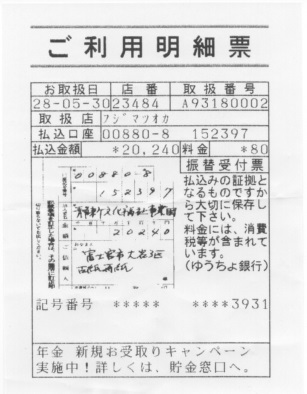 ご利用明細票
お取扱日 店番 取扱番号
28-05-30 23484 A93180002
取扱店 フジマツオカ
払込口座 00880-8 152397
払込金額 *20,240 料金 *80
振替受付票
払込みの証拠と
なるものですか
ら大切に保存し
て下さい。
料金には、消費
税等が含まれて
います。
(ゆうちょ銀行)
00880-8
152397
20240
富士宮市大宮
記号番号 ***** ****3931
年金 新規お受取りキャンペーン
実施中!詳しくは、貯金窓口へ。